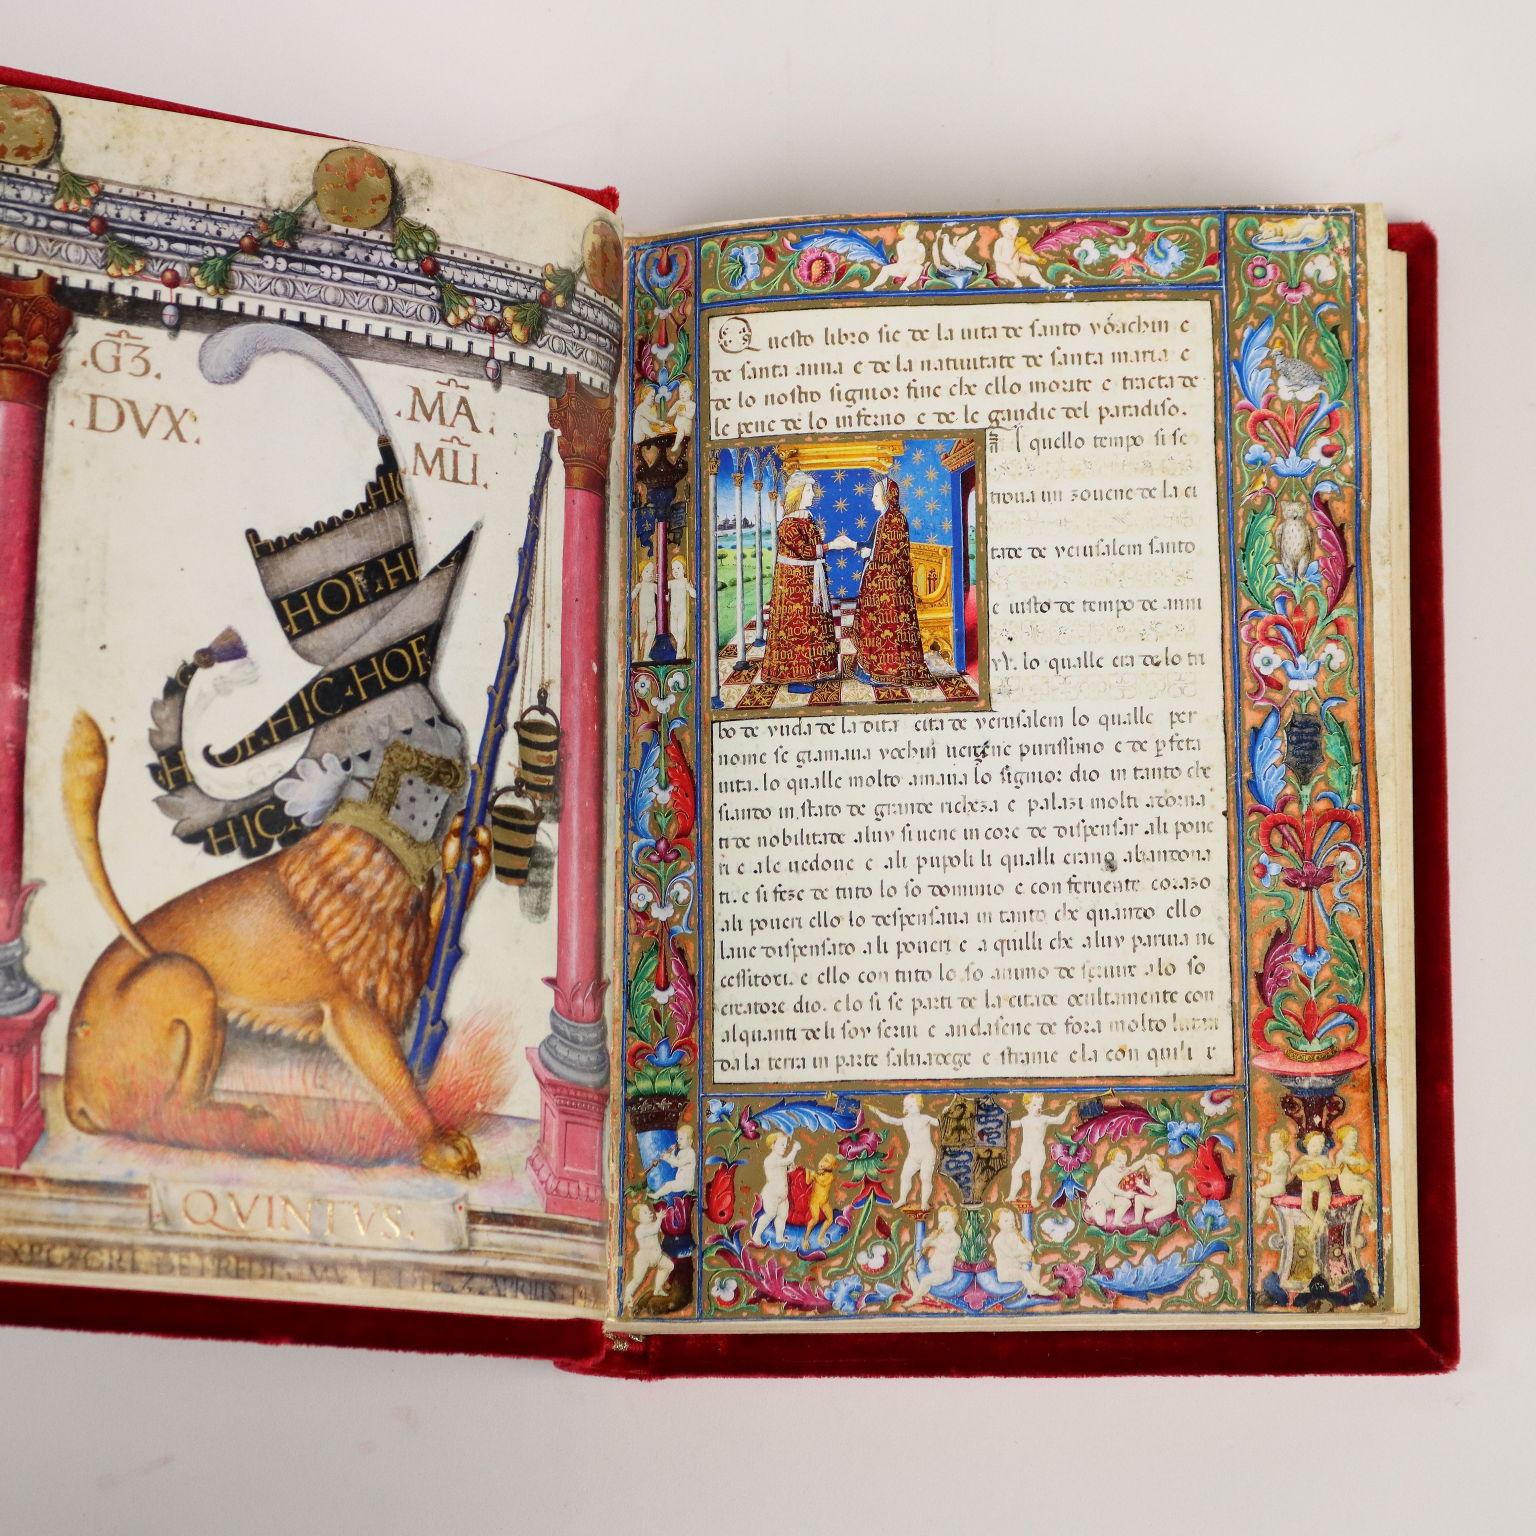 .GZ3.
.DVX.
.MA.
.MLI.
HIC
HOF.HI
HIC.HOF.
HIC
QVINTVS.
APRILIS
Questo libro sie de la uita de santo yoachin e
de santa anna e de la natiuitate de santa maria e
de lo nostro signior fine che ello morite e tracta de
le pene de lo inferno e de le gaudie del paradiso.
I quello tempo si se
troua un zouene de la ci
tade de yerusalem santo
e iusto de tempo de anni
xv. lo qualle era de lo tri
bo de yuda de la dita cita de yerusalem lo qualle per
nome se giamaua yochin uergene purissimo e de pfeta
uita. lo qualle molto amaua lo signior dio in tanto che
siando in stato de grande richeza e palazi molti adorna
ti de nobilitade aluy si uene in core de dispensar ali poue
ri e ale uedoue e ali pupoli li qualli erano abandona
ti. e si feze de tuto lo so dominio e con feruente corazo
ali poueri ello lo despensaua in tanto che quando ello
laue dispensato ali poueri e a quilli che aluy pariua ne
cessitori. e ello con tuto lo so animo de seruire alo so
creatore dio. elo si se parti de la citade ocultamente con
alquanti de li soy serui e andasene de fora molto
da la terra in parte saluadege e stranie e la con quili